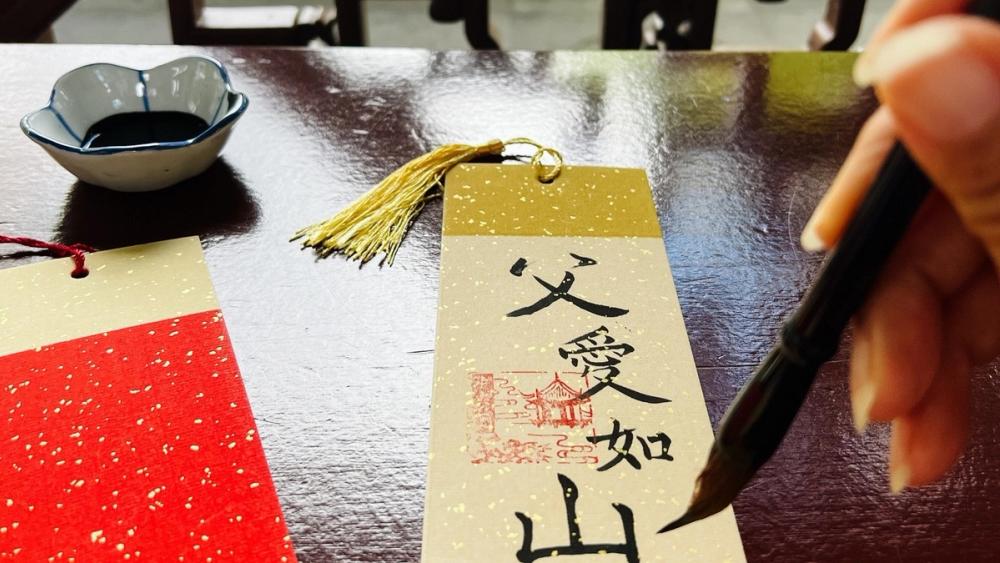 父
愛
如
山